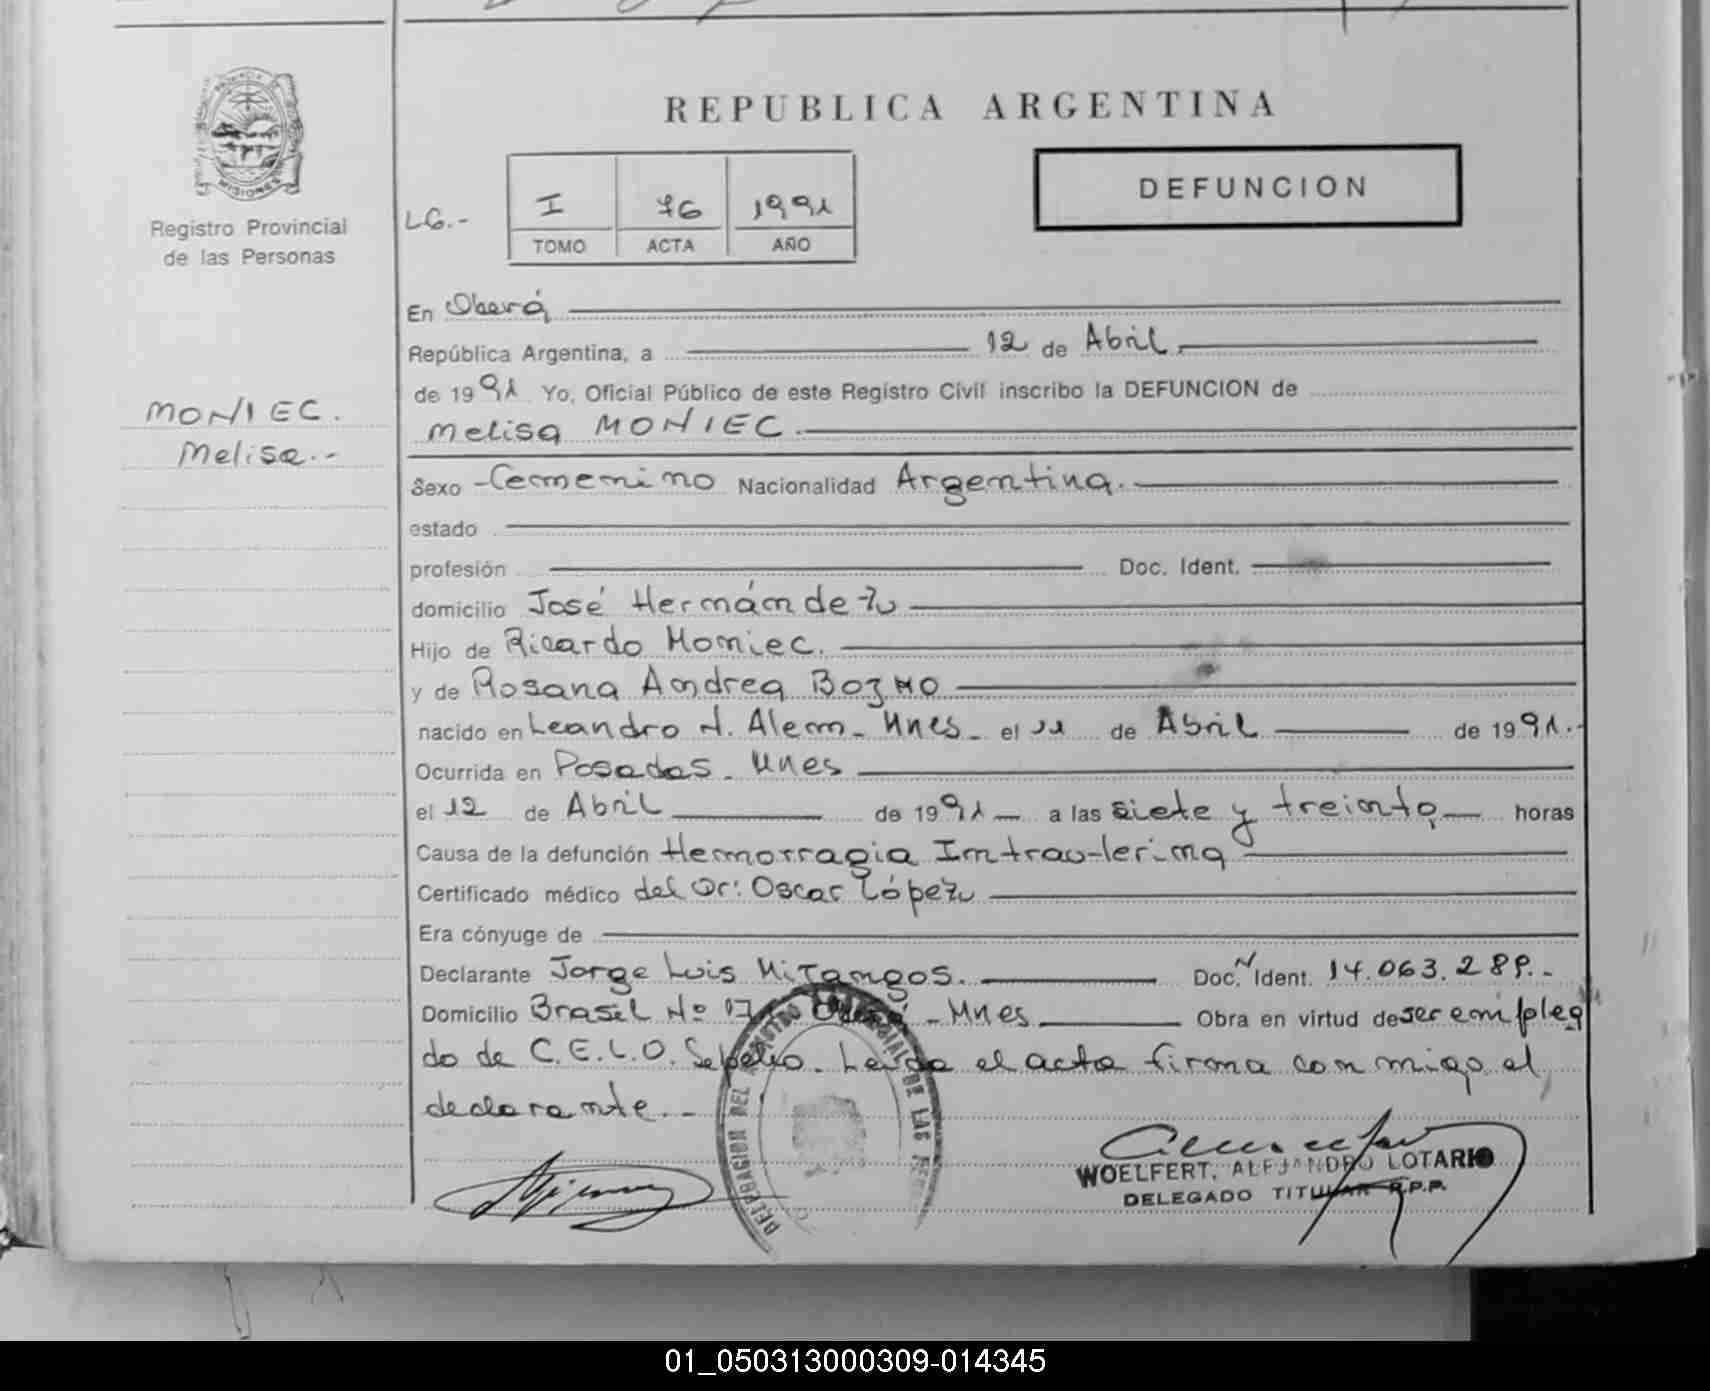 PROVINCIA
MISIONES
REPUBLICA ARGENTINA
DEFUNCION
Registro Provincial
de las Personas
LG.-
I 76 1991
TOMO ACTA AÑO
En Oberá
República Argentina, a 12 de Abril
de 1991 Yo, Oficial Público de este Registro Civil inscribo la DEFUNCION de
MONIEC.
Melisa.-
Melisa MONIEC.
Sexo Femenino Nacionalidad Argentina.
estado
profesión Doc. Ident.
domicilio José Hernández
Hijo de Ricardo Moniec.
y de Rosana Andrea
nacido en Leandro N. Alem- Mnes- el 11 de Abril de 1991.-
Ocurrida en Posadas- Mnes
el 12 de Abril de 1991 a las siete y treinta horas
Causa de la defunción Hemorragia Intrauterina
Certificado médico del Dr: Oscar López
Era cónyuge de
Declarante Jorge Luis Doc. N Ident. 14.063.289.-
Domicilio Brasil Nº Oberá - Mnes Obra en virtud de ser emplea
do de C.E.L.O. Sepelio. Leída el acta firma con migo el
declarante.-
DELEGACION DEL REGISTRO PROVINCIAL DE LAS
WOELFERT, ALEJANDRO LOTARIO
DELEGADO TITULAR R.P.P.
01_050313000309-014345